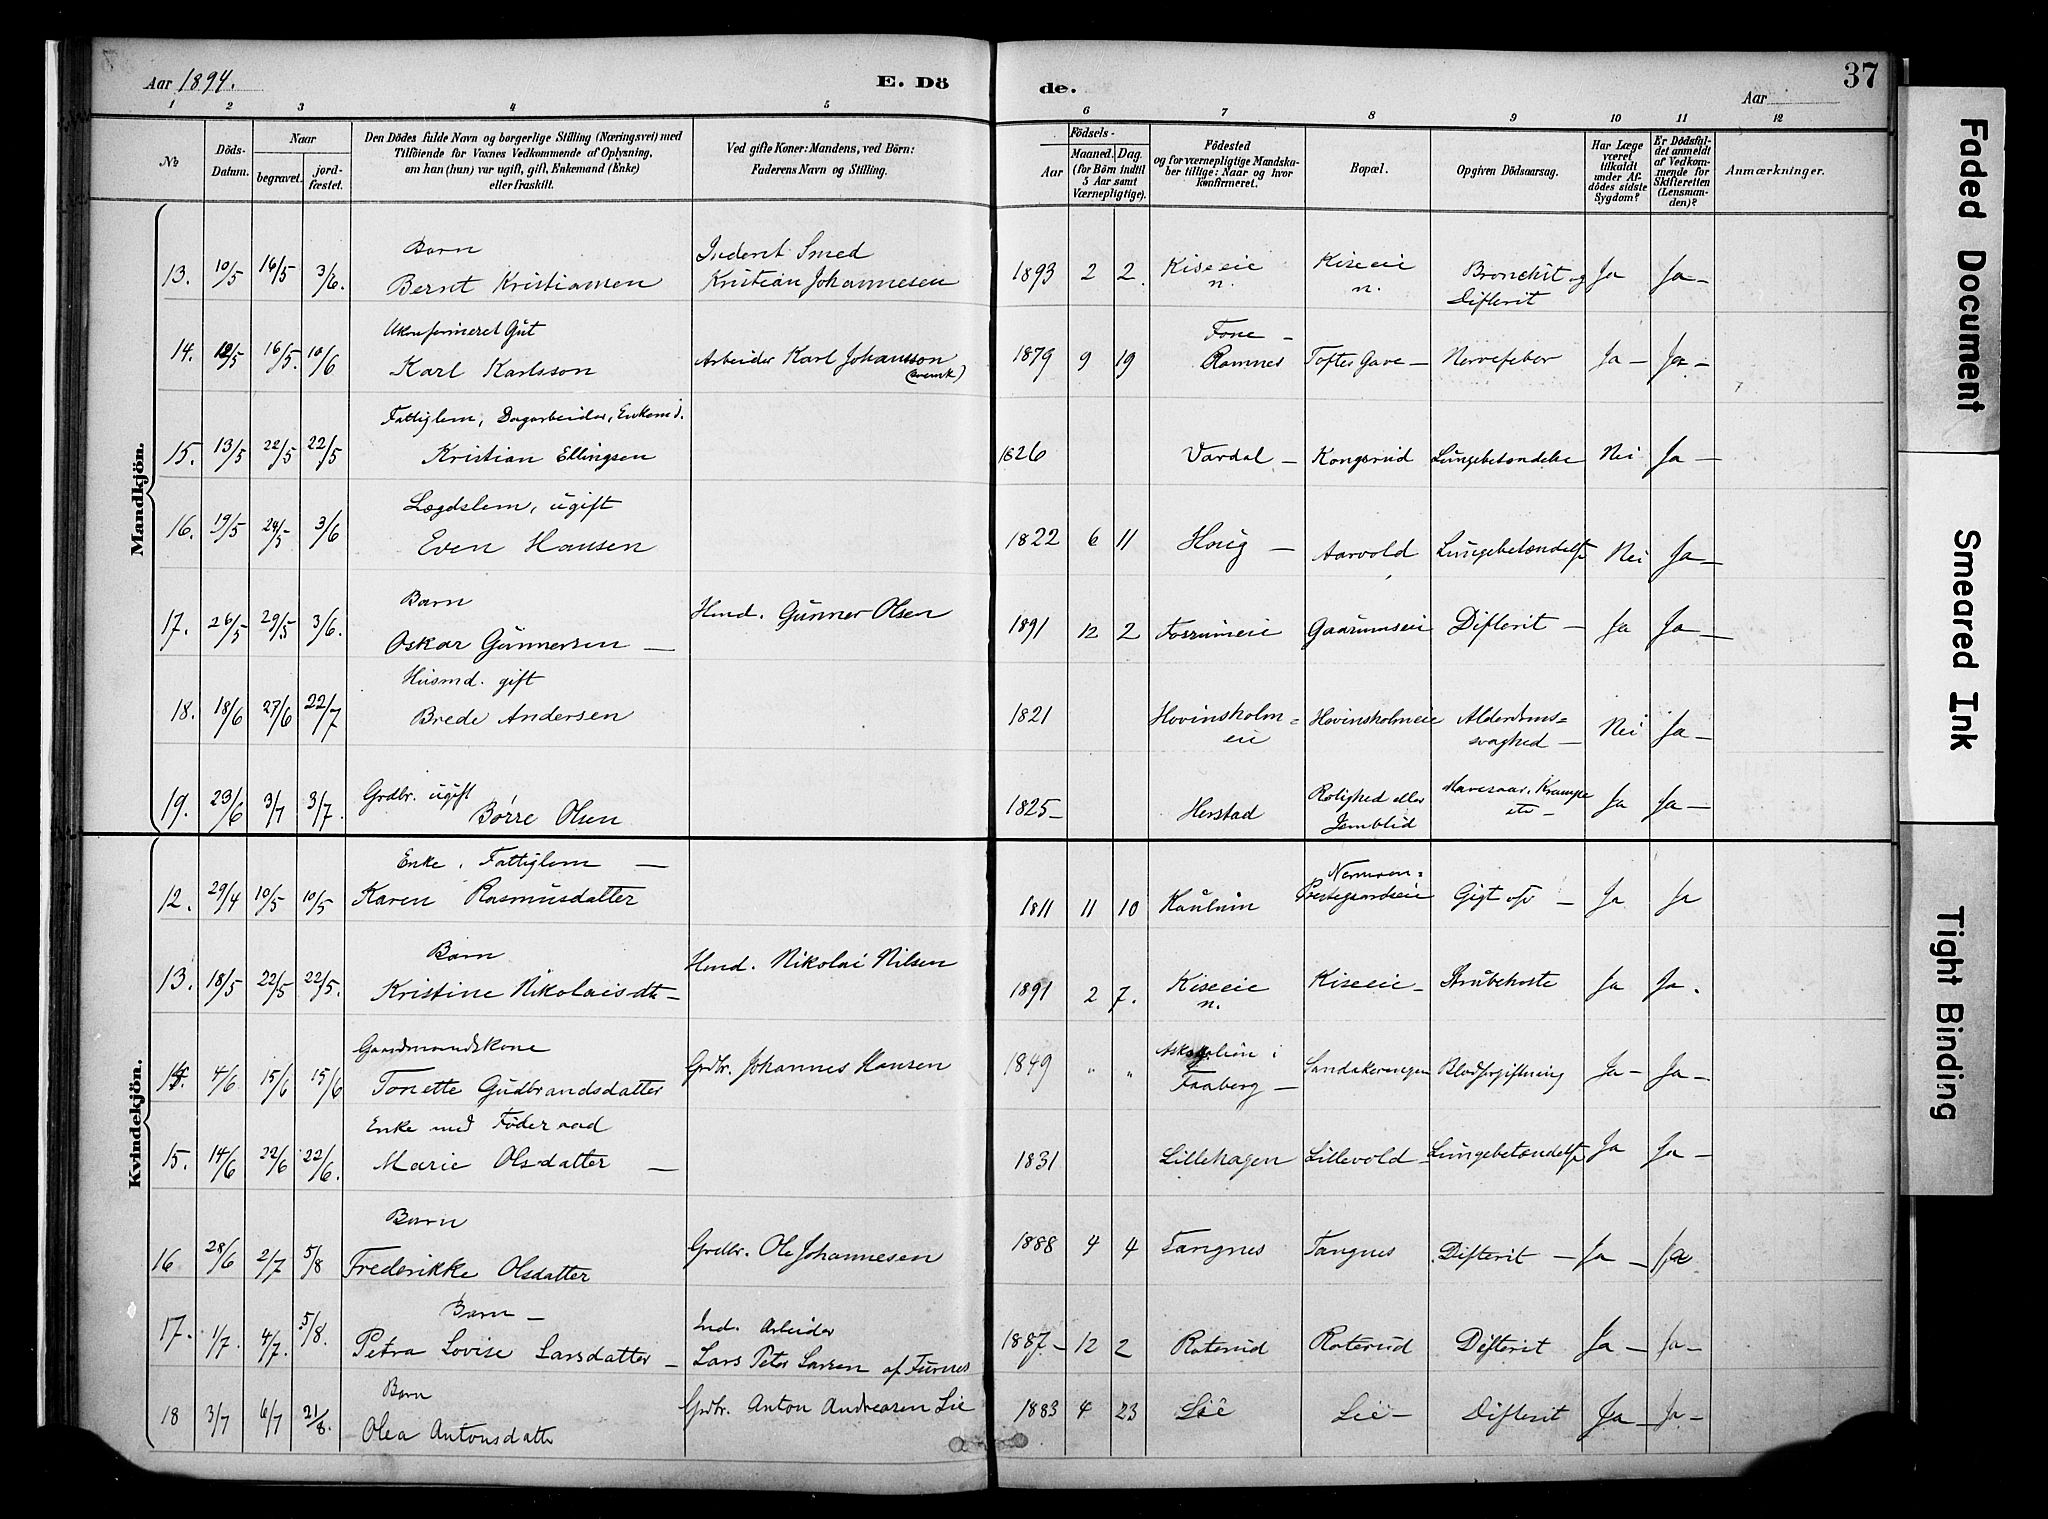 Aar 1894.
E. Dö
de.
Aar
37
1 2 3 4 5 6 7 8 9 10 11 12
No
Döds-Datum.
Naar
begravet.
jord-fæstet.
Den Dödes fulde Navn og borgerlige Stilling (Næringsvei) med
Tilföiende for Voxnes Vedkommende af Oplysning,
om han (hun) var ugift, gift, Enkemand (Enke)
eller fraskilt.
Ved gifte Koner: Mandens, ved Börn:
Faderens Navn og Stilling.
Födsels-
Aar
Maaned. Dag.
(for Börn indtil
5 Aar samt
Værnepligtige).
Födested
og for værnepligtige Mandska-
ber tillige: Naar og hvor
konfirmeret.
Bopæl.
Opgiven Dödsaarsag.
Har Læge
været
tilkaldt
under Af-
dödes sidste
Sygdom?
Er Dödsfal-
det anmeldt
af Vedkom-
mende for
Skifteretten
(Lensman-
den)?
Anmærkninger.
Mandkjön.
Barn Inderst Smed
13. 10/5 16/5 3/6. Bernt Kristiansen Kristian Johannesen 1893 2 2. Kiseeie n. Kiseeie n. Bronchit og Difterit Ja Ja –
Ukonfirmeret Gut
14. 12/5 16/5. 10/6 Karl Karlsson Arbeider Karl Johansson (svensk) 1879 9 19 Fone – Ramnes Toftes Gave – Nervefeber Ja – Ja –
Fattiglem, Dagarbeider, Enkemd.
15. 13/5 22/5 22/5 Kristian Ellingsen 1826 Vardal – Kongsrud Lungebetændelse Nei Ja –
Lægdslem, ugift
16. 19/5 24/5 3/6 Even Hansen 1822 6 11 Houg – Aarvold Lungebetændelse Nei Ja –
Barn
17. 26/5 29/5 3/6. Oskar Gunnersen – Husmd. Gunner Olsen 1891 12 2 Fossumeie Gaarumseie Difterit – Ja Ja –
Husmd. gift
18. 18/6 27/6 22/7 Brede Andersen 1821 Hovinsholm=eie Hovinsholmeie Alderdoms=svaghed – Nei Ja –
Grdbr. ugift
19. 23/6 3/7 3/7. Børre Olsen 1825 – Herstad Rolighed eller Jemblid Mavesaar, Krampe etc – Ja Ja –
Kvindekjön.
Enke, Fattiglem –
12. 29/4 10/5 10/5 Karen Rasmusdatter 1811 11 10 Kaulum Prestegaardseie Gigt – Ja Ja
Barn
13. 18/5 22/5 22/5. Kristine Nikolaisdtr – Husmd. Nikolai Nilsen 1891 2 7. Kiseeie n. Kiseeie – Strubehoste Ja Ja.
Gaardmandskone
14. 4/6 15/6 15/6 Tonette Gudbrandsdatter Grdbr. Johannes Hansen 1849 " " i Faaberg – Sandakerengen Blodforgiftning Ja – Ja –
Enke med Føderaad
15. 14/6 22/6 22/6. Marie Olsdatter – 1831 Lillehagen Lillevold – Lungebetændelse Ja Ja –
Barn
16 28/6 2/7 5/8 Frederikke Olsdatter Grdbr. Ole Johannesen 1888 4 4 Tangnes Tangnes Difterit – Ja – Ja
Barn – Ind. Arbeider
17. 1/7. 4/7. 5/8. Petra Lovise Larsdatter – Lars Peter Larsen af Furnes 1887 – 12 2 Roterud Roterud Difterit Ja – Ja –
Barn
18 3/7 6/7 21/8. Olea Antonsdatter Grdbr. Anton Andreasen Lie 1883 4 23 Lie Lie – Difterit Ja – Ja –
Faded Document
Smeared Ink
Tight Binding